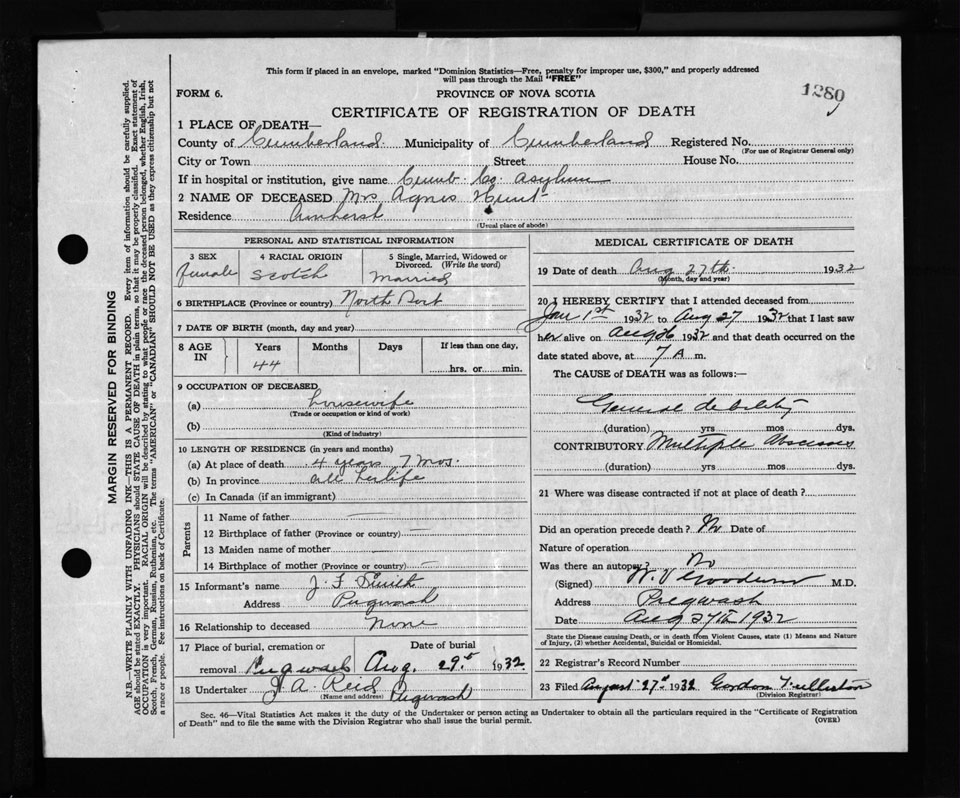 This form if placed in an envelope, marked "Dominion Statistics—Free, penalty for improper use, $300," and properly addressed
will pass through the Mail "FREE"
FORM 6.
PROVINCE OF NOVA SCOTIA
1280
CERTIFICATE OF REGISTRATION OF DEATH
1 PLACE OF DEATH—
County of Cumberland. Municipality of Cumberland Registered No.
(For use of Registrar General only)
City or Town Street House No.
If in hospital or institution, give name Cumb. Co. Asylum
2 NAME OF DECEASED Mrs Agnes Hunt
Residence Amherst
(Usual place of abode)
PERSONAL AND STATISTICAL INFORMATION
3 SEX 4 RACIAL ORIGIN 5 Single, Married, Widowed or
Divorced. (Write the word)
female Scotch Married
6 BIRTHPLACE (Province or country) North Port
7 DATE OF BIRTH (month, day and year)
8 AGE IN Years Months Days If less than one day,
44 hrs. or min.
9 OCCUPATION OF DECEASED
(a) housewife
(Trade or occupation or kind of work)
(b)
(Kind of industry)
10 LENGTH OF RESIDENCE (in years and months)
(a) At place of death 4 years 7 mos.
(b) In province all her life
(c) In Canada (if an immigrant)
Parents
11 Name of father
12 Birthplace of father (Province or country)
13 Maiden name of mother
14 Birthplace of mother (Province or country)
15 Informant's name J. F. Smith
Address Pugwash
16 Relationship to deceased None
17 Place of burial, cremation or Date of burial
removal Pugwash Aug. 29th 1932
18 Undertaker J. A. Reid Pugwash
(Name and address)
MEDICAL CERTIFICATE OF DEATH
19 Date of death Aug 27th 1932
(Month, day and year)
20 I HEREBY CERTIFY that I attended deceased from
Jan 1st 1932 to Aug 27 1932 that I last saw
her alive on Aug 26 1932 and that death occurred on the
date stated above, at 7 A m.
The CAUSE of DEATH was as follows:—
General debility
(duration) yrs mos dys.
CONTRIBUTORY Multiple Abscesses
(duration) yrs mos dys.
21 Where was disease contracted if not at place of death?
Did an operation precede death? No Date of
Nature of operation
Was there an autopsy? No
(Signed) M.D.
Address Pugwash
Date Aug 27th 1932
State the Disease causing Death, or in death from Violent Causes, state (1) Means and Nature
of Injury, (2) whether Accidental, Suicidal or Homicidal.
22 Registrar's Record Number
23 Filed August 27th 1932 Gordon Fullerton
(Division Registrar)
Sec. 46—Vital Statistics Act makes it the duty of the Undertaker or person acting as Undertaker to obtain all the particulars required in the "Certificate of Registration
of Death" and to file the same with the Division Registrar who shall issue the burial permit.
(OVER)
MARGIN RESERVED FOR BINDING
N.B.—WRITE PLAINLY WITH UNFADING INK—THIS IS A PERMANENT RECORD. Every item of information should be carefully supplied.
AGE should be stated EXACTLY. PHYSICIANS should STATE CAUSE OF DEATH in plain terms, so that it may be properly classified. Exact statement of
OCCUPATION is very important. RACIAL ORIGIN will be described by stating to what people or race the deceased person belonged, whether English, Irish,
Scotch, French, German, Russian, Ruthenian, etc. The terms "AMERICAN" or "CANADIAN" SHOULD NOT BE USED as they express citizenship but not
a race or people. See instructions on back of Certificate.